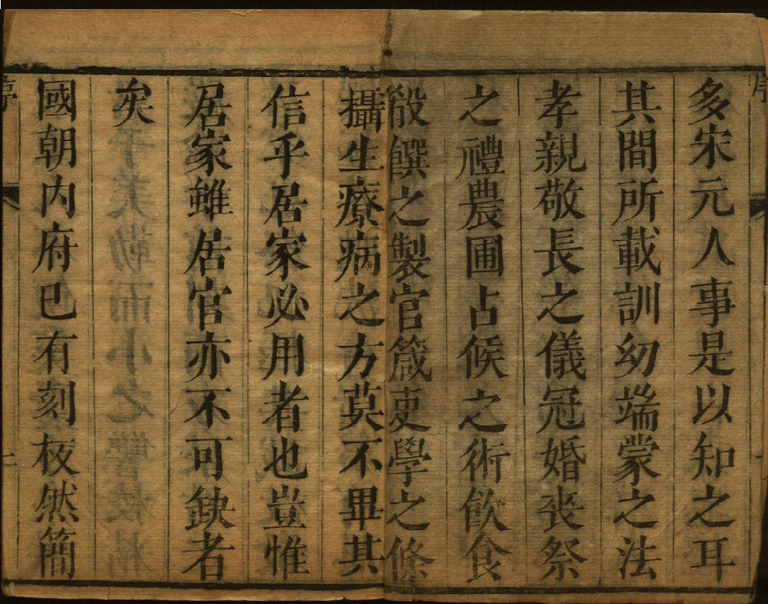 多宋元人事是以知之耳
其間所載訓幼端蒙之法
孝親敬長之儀冠婚丧祭
之禮農圃占候之術飲食
殽饌之製官箴吏學之條
攝生療病之方莫不畢其
信乎居家必用者也豈惟
居家雖居官亦不可缺者
矣
國朝内府已有刻板然簡